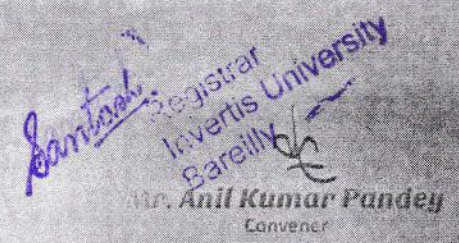 Santosh
Registrar
Invertis University
Bareilly
Mr. Anil Kumar Pandey
Convener